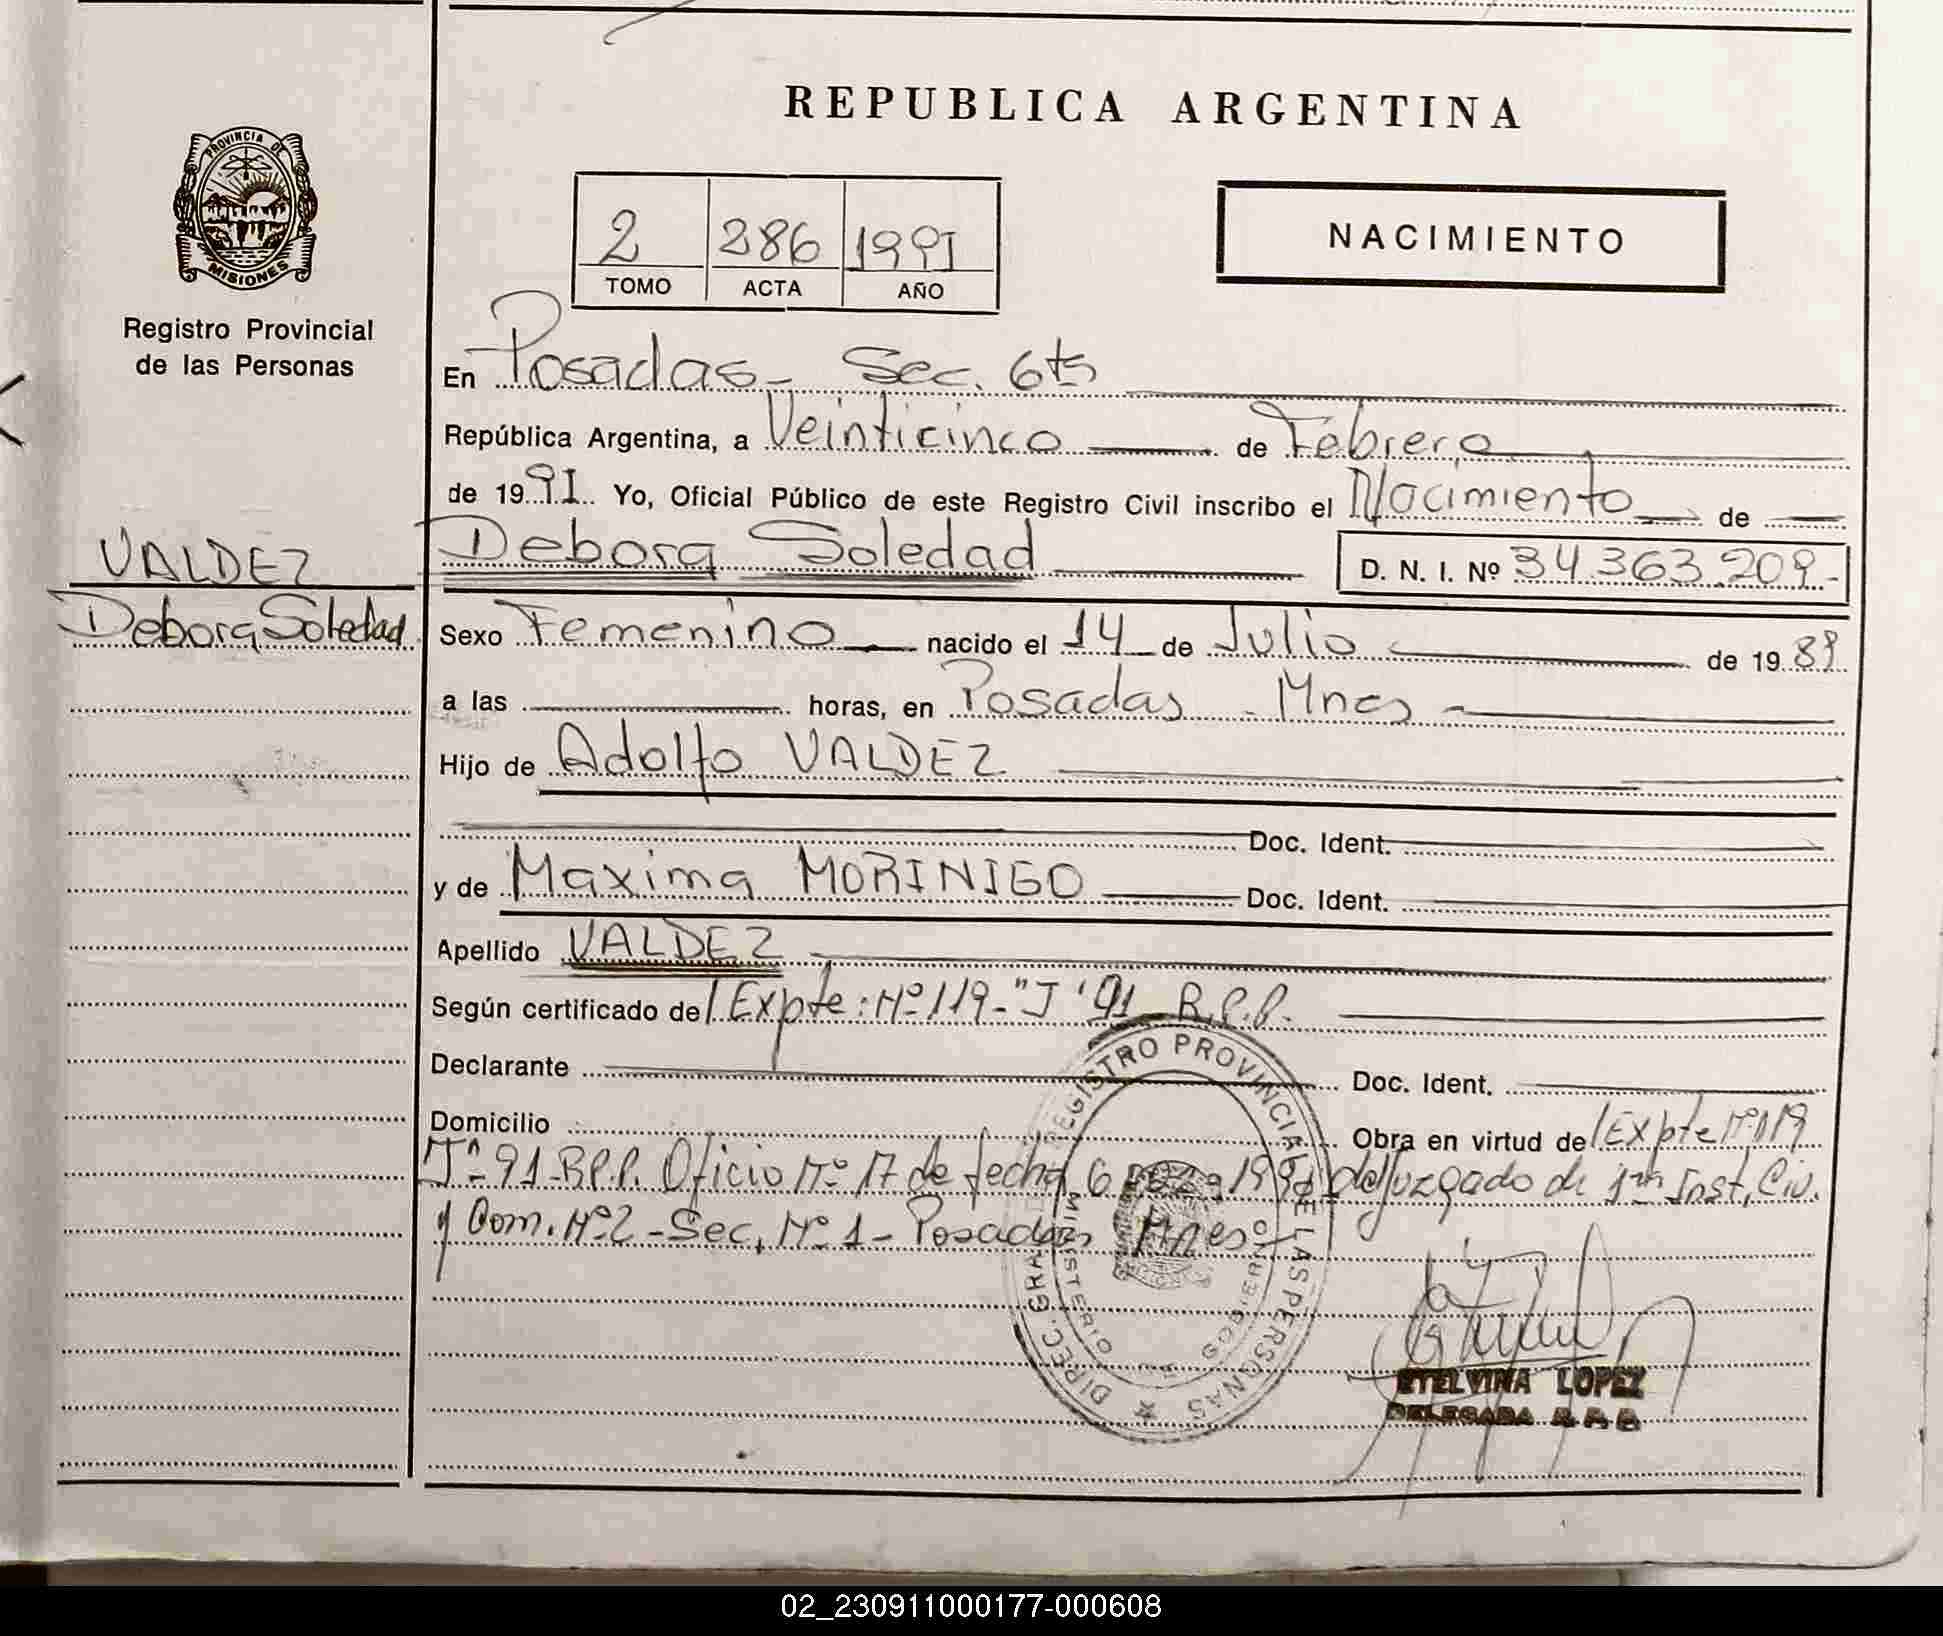 REPUBLICA ARGENTINA
PROVINCIA DE
MISIONES
Registro Provincial
de las Personas
2 286 1991
TOMO ACTA AÑO
NACIMIENTO
En Posadas - Sec. 6ta
República Argentina, a Veinticinco de Febrero
de 1991 Yo, Oficial Público de este Registro Civil inscribo el Nacimiento de
VALDEZ
Debora Soledad
Debora Soledad D. N. I. Nº 34.363.209.-
Sexo Femenino nacido el 14 de Julio de 1989
a las horas, en Posadas - Mnes -
Hijo de Adolfo VALDEZ
Doc. Ident.
y de Maxima MORINIGO Doc. Ident.
Apellido VALDEZ
Según certificado de Expte: Nº 119 - "J" 91 R.P.P.
Declarante Doc. Ident.
Domicilio Obra en virtud de Expte Nº 119
"J" - 91 - R.P.P. Oficio Nº 17 de fecha 6 1991 del Juzgado de 1ra Inst. Civ.
y Com. Nº 2 - Sec. Nº 1 - Posadas Mnes -
DIREC. GRAL. REGISTRO PROVINCIAL DE LAS PERSONAS
MINISTERIO DE GOBIERNO
ETELVINA LOPEZ
DELEGADA R.P.P.
02_230911000177-000608